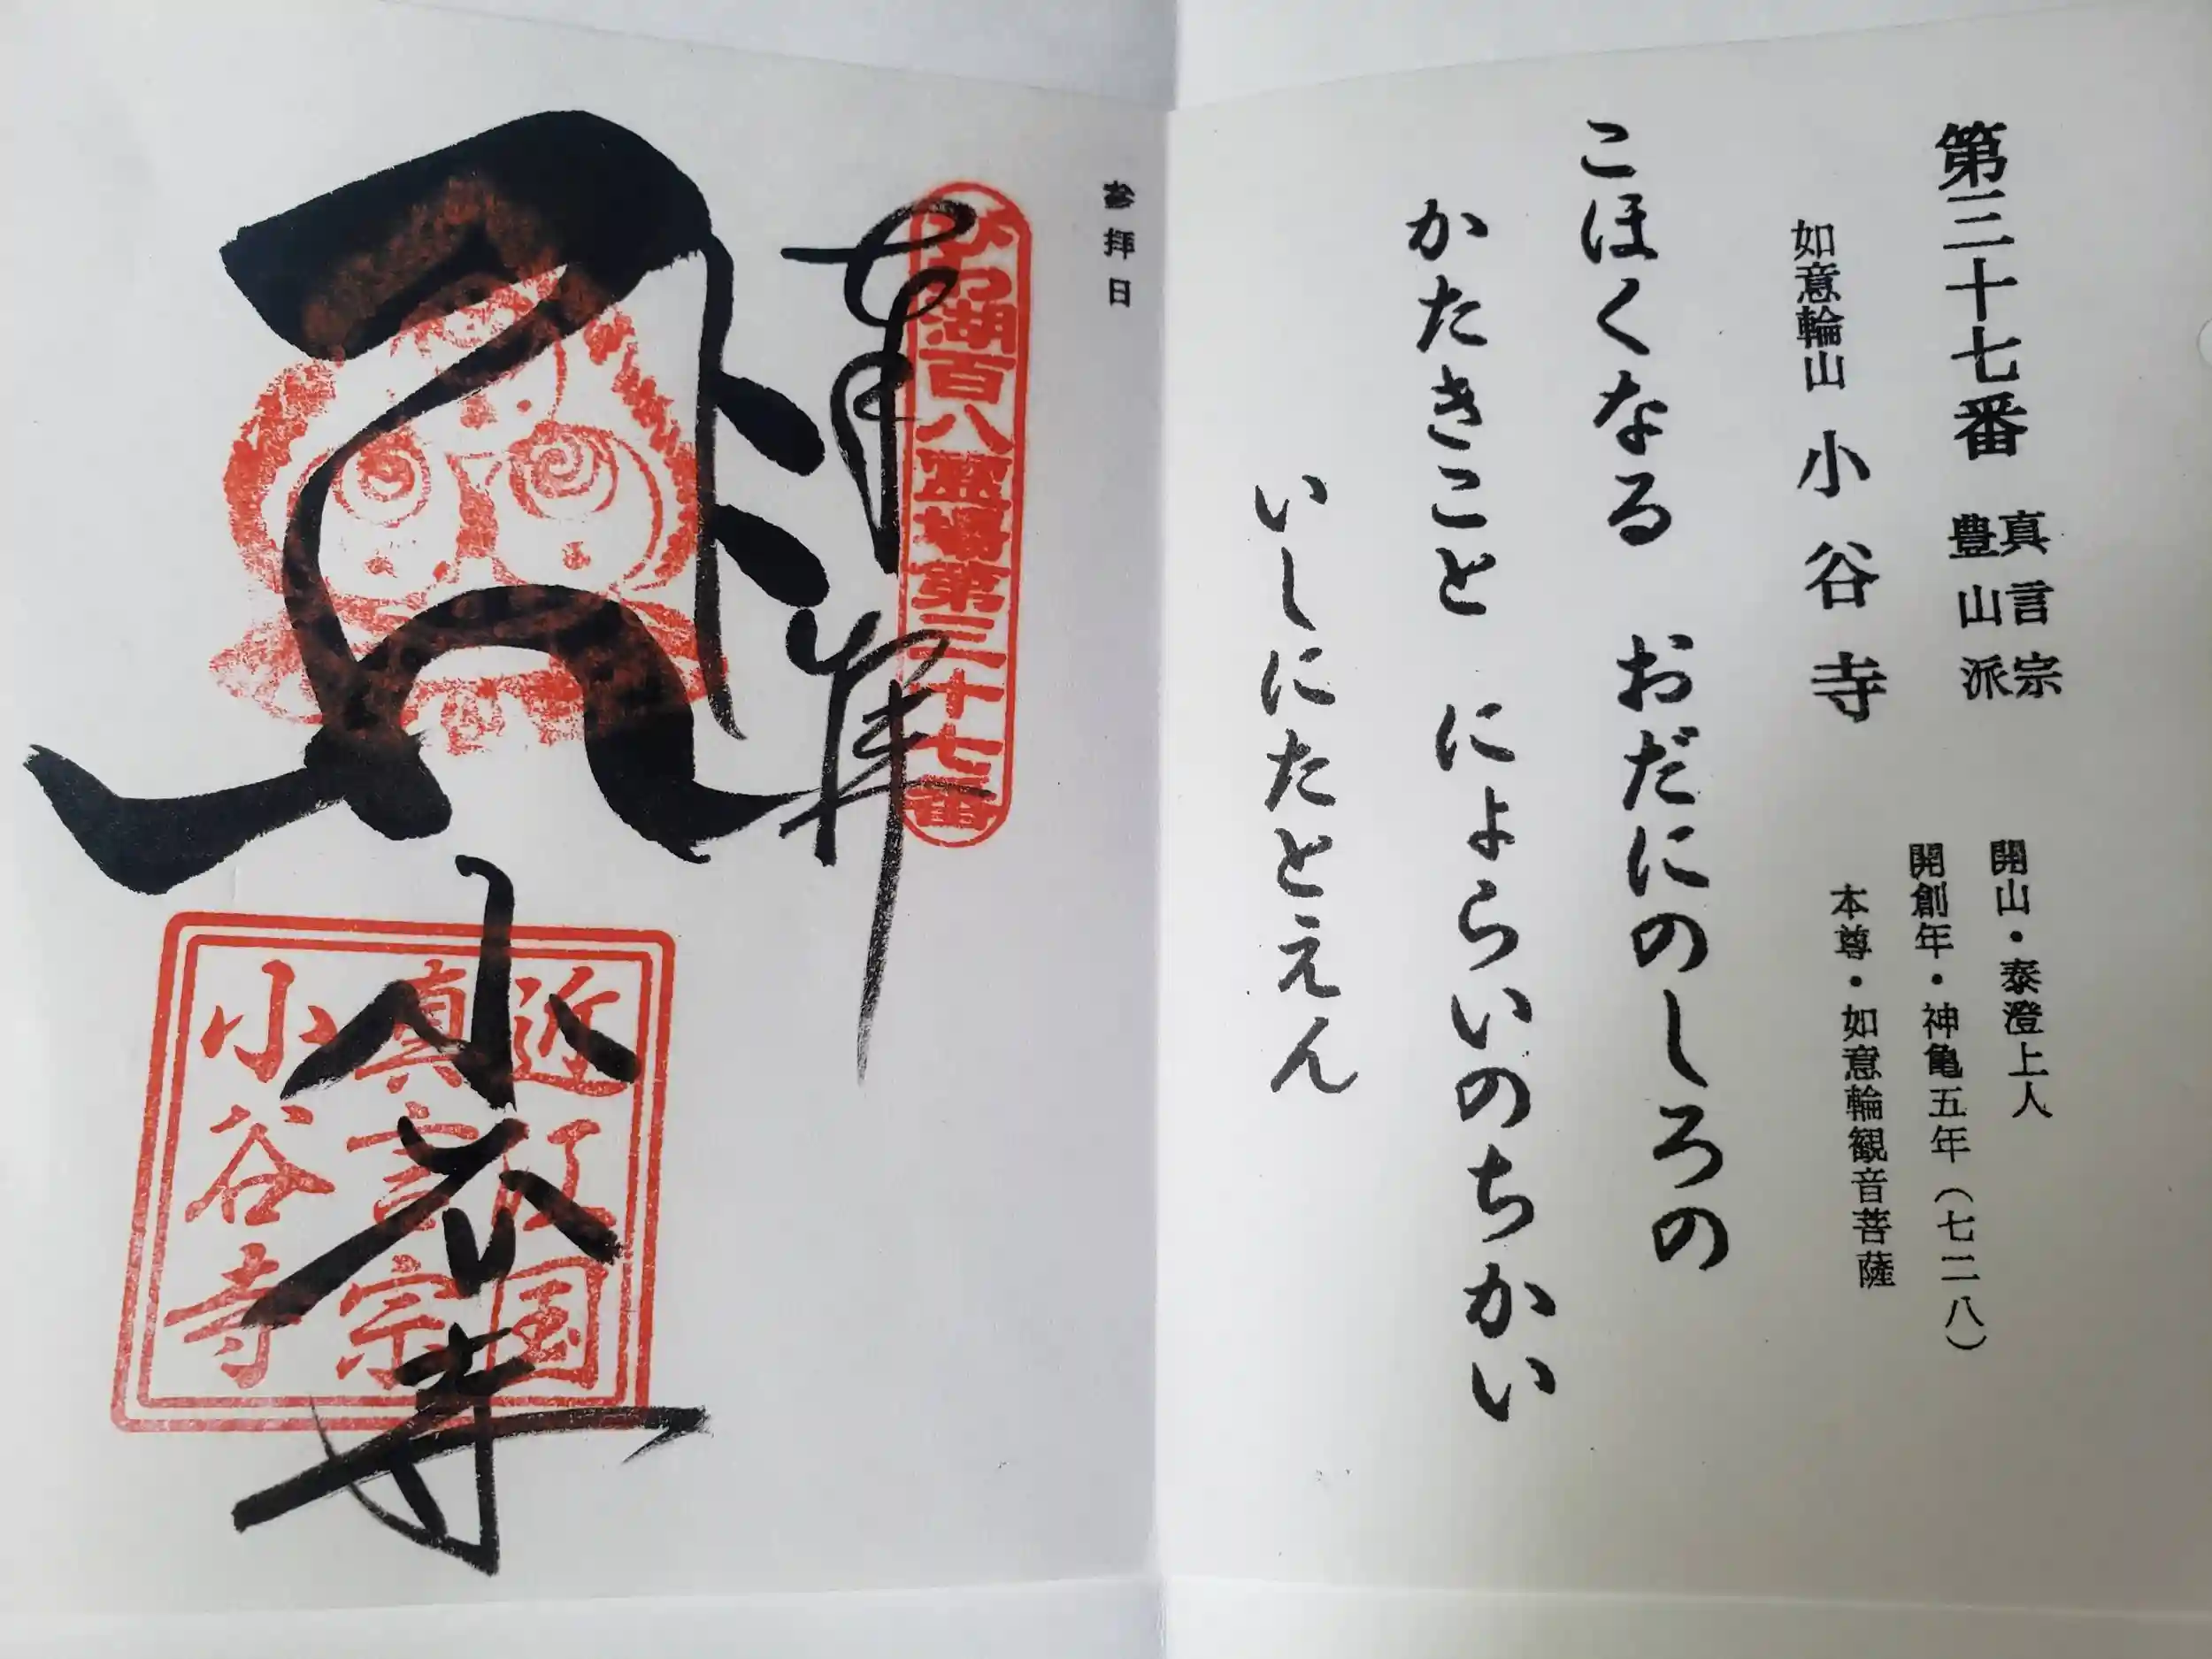 第三十七番 真言宗豊山派
開山・泰澄上人
開創年・神亀五年(七二八)
本尊・如意輪観音菩薩
如意輪山 小谷寺
こほくなる おだにのしろの
かたきこと によらいのちかい
いしにたとえん
参拝日
びわ湖百八霊場第三十七番
奉拝
小谷寺
近江国
真言宗
小谷寺